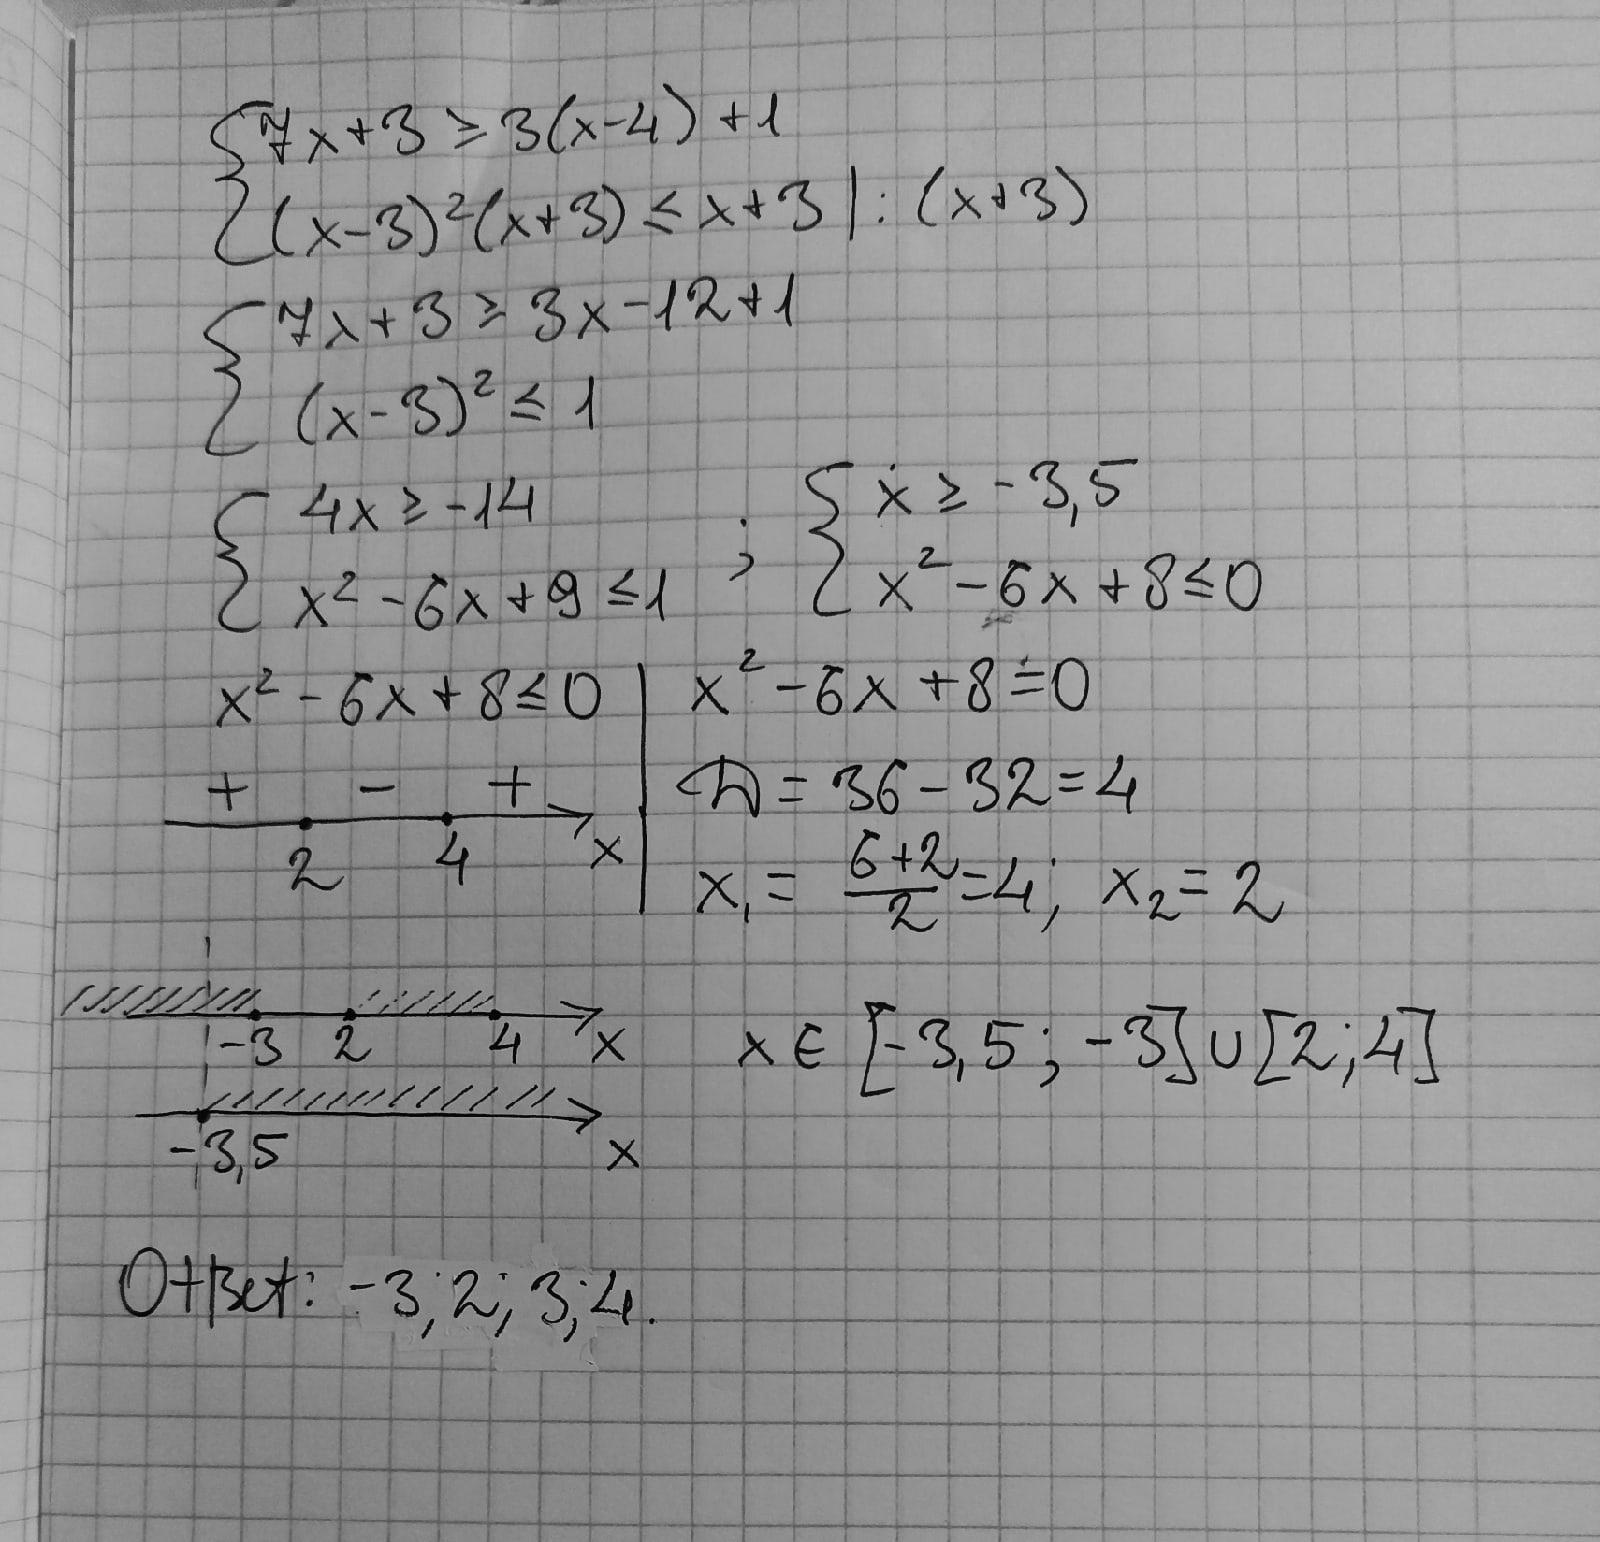 {7x+3 ≥ 3(x-4)+1
{(x-3)²(x+3) ≤ x+3 |: (x+3)
{7x+3 ≥ 3x-12+1
{(x-3)² ≤ 1
{4x ≥ -14 ; {x ≥ -3,5
{x²-6x+9 ≤ 1 {x²-6x+8 ≤ 0
x²-6x+8 ≤ 0 | x²-6x+8 = 0
+ - +
D = 36-32 = 4
2 4 x
x₁ = (6+2)/2 = 4; x₂ = 2
-3 2 4 x
x ∈ [-3,5; -3] ∪ [2; 4]
-3,5 x
Ответ: -3; 2; 3; 4.